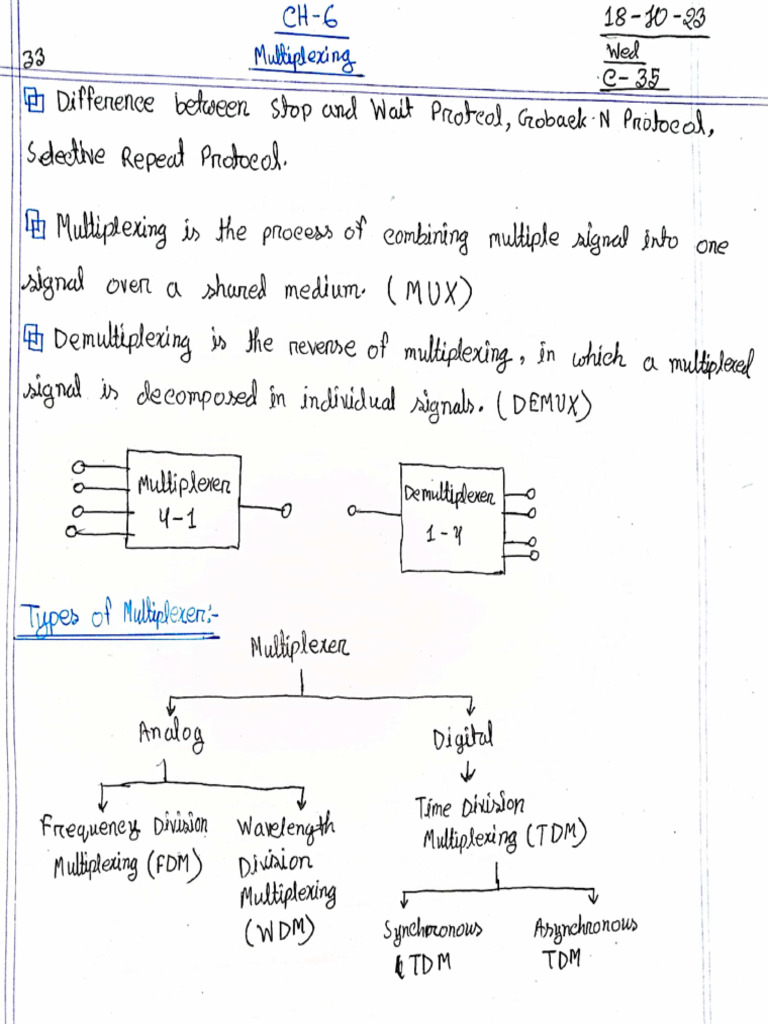 CH-6
18-10-23
Multiplexing
Wed
33
C-35
Difference between Stop and Wait Protcol, Goback-N Protocol,
Selective Repeat Protocol.
Multiplexing is the process of combining multiple signal into one
signal over a shared medium. (MUX)
Demultiplexing is the reverse of multiplexing, in which a multiplexed
signal is decomposed in individual signals. (DEMUX)
Multiplexer
4-1
Demultiplexer
1-4
Types of Multiplexer:-
Multiplexer
Analog
Digital
Frequency Division
Multiplexing (FDM)
Wavelength
Division
Multiplexing
(WDM)
Time Division
Multiplexing (TDM)
Synchronous
TDM
Asynchronous
TDM